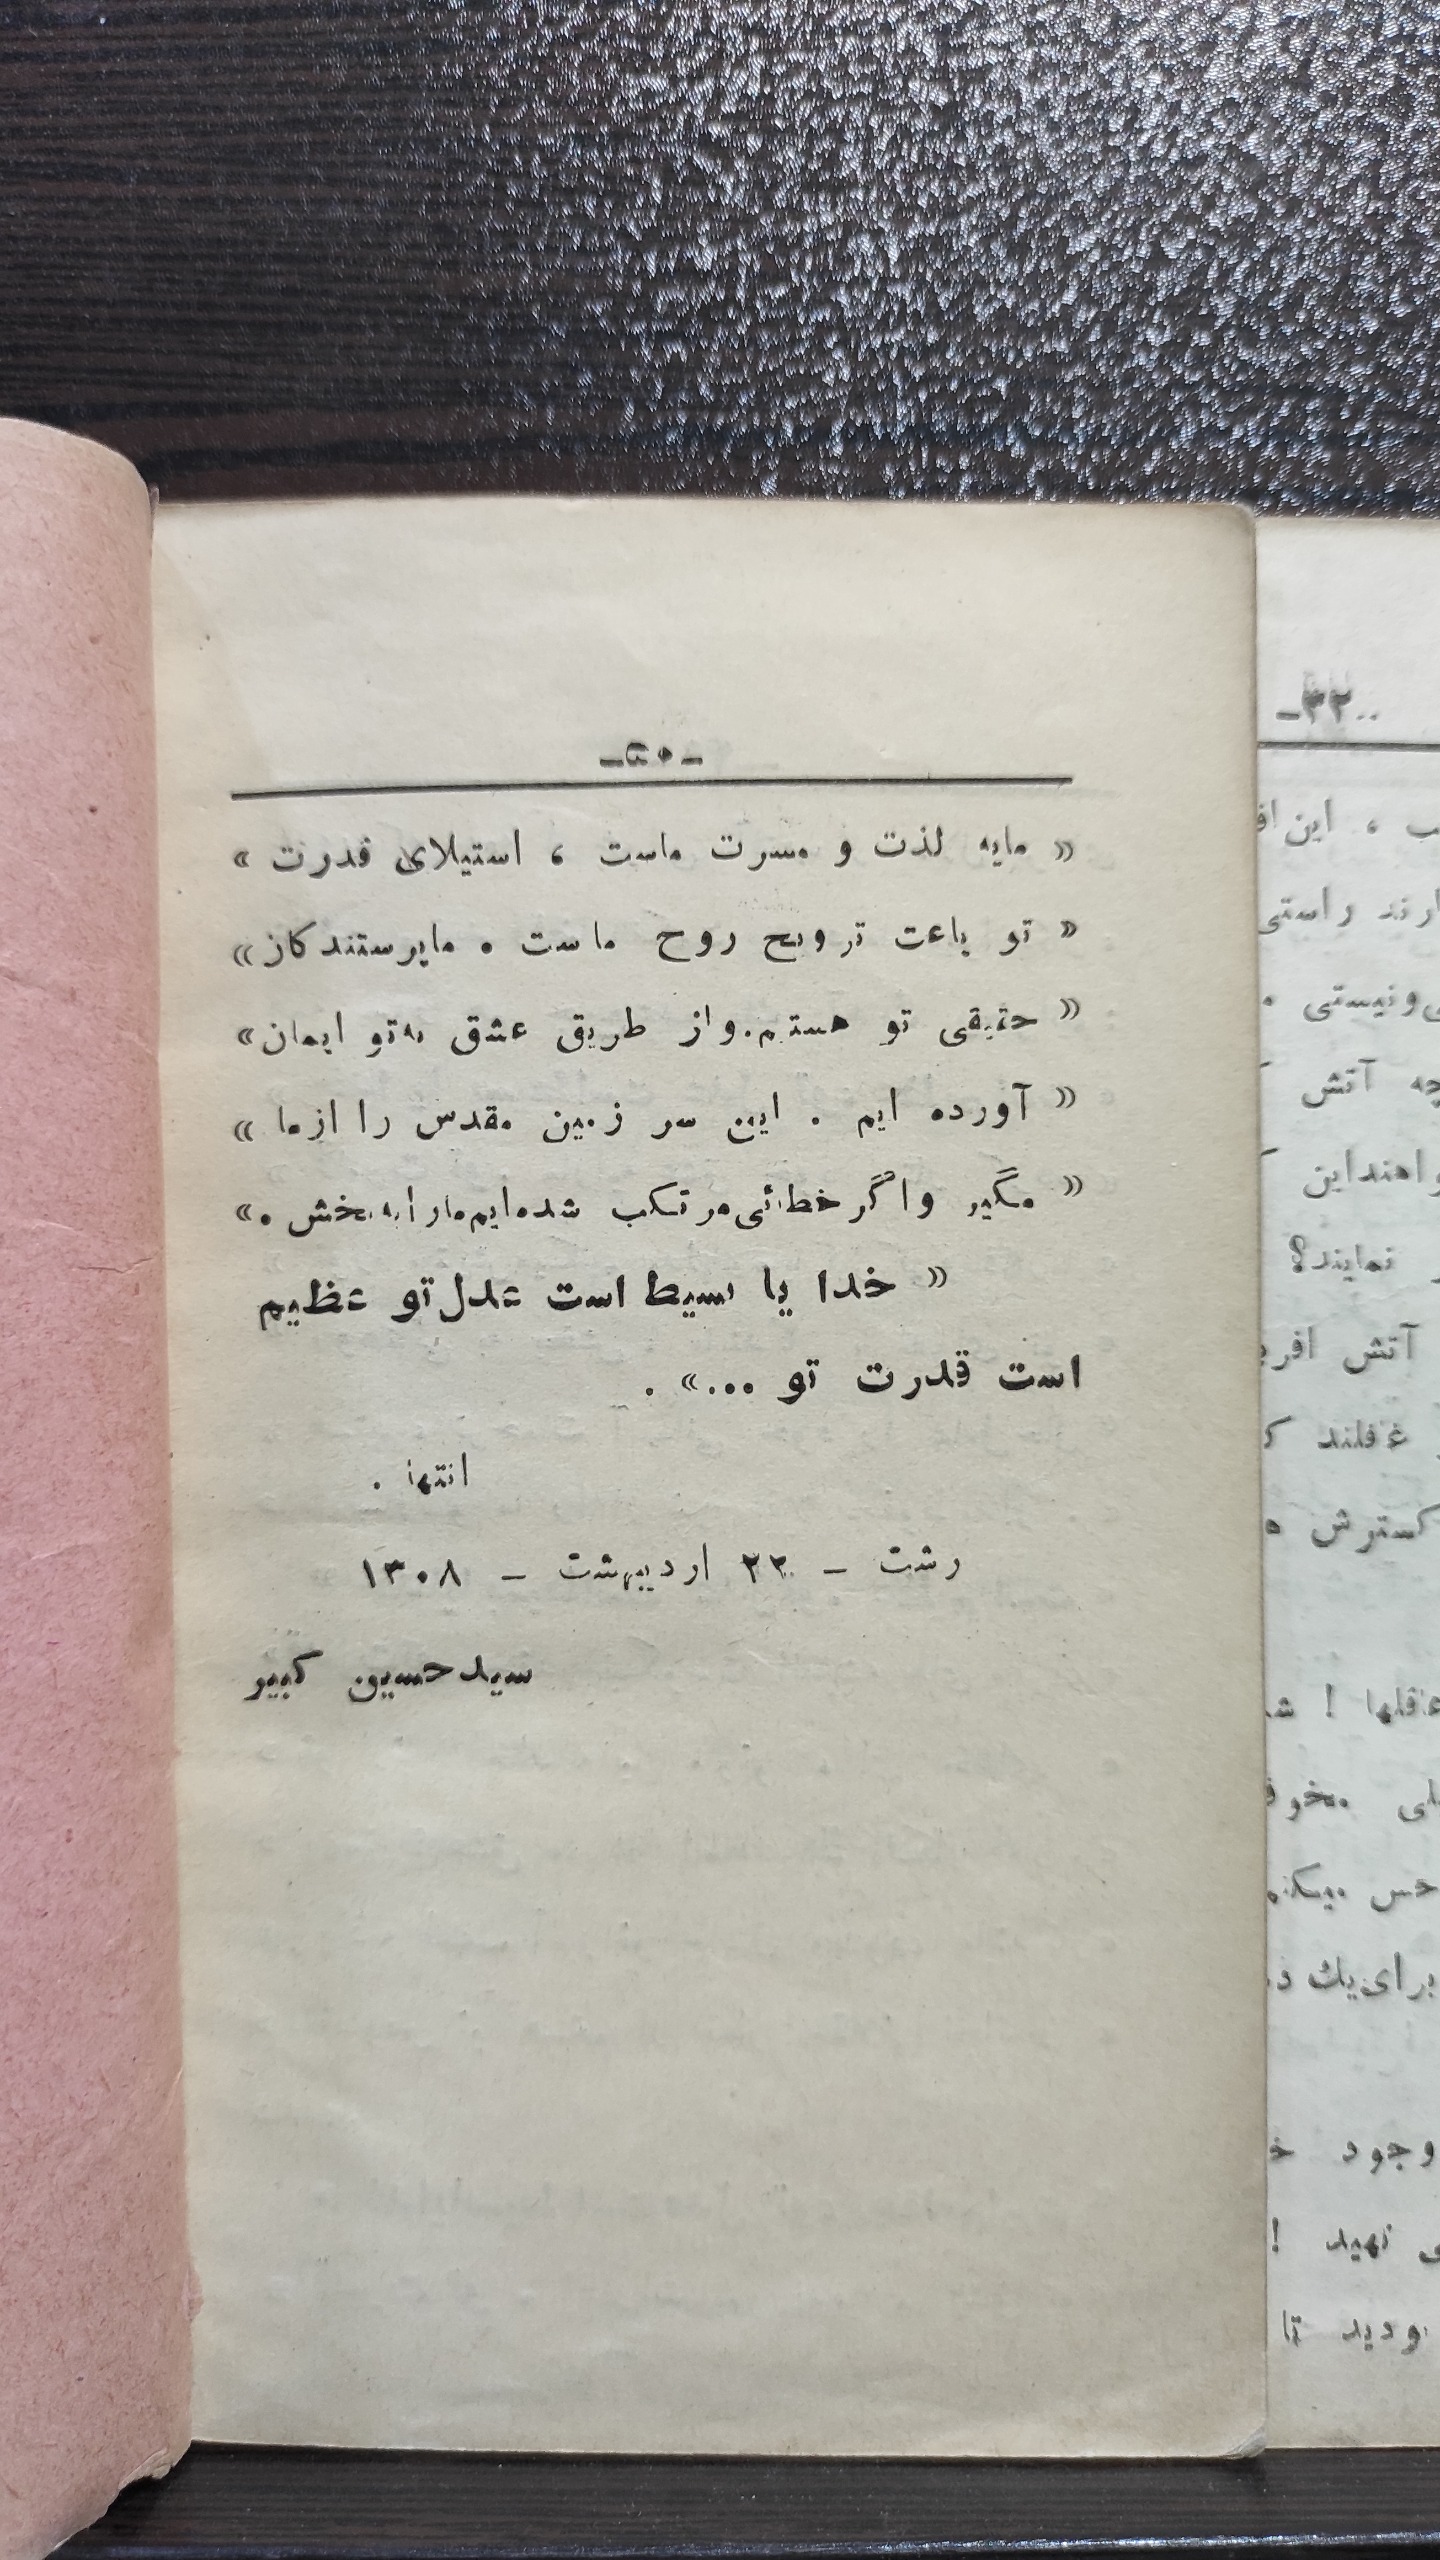 « مایه لذت و مسرت ماست ، استیلای قدرت »
« تو باعث ترویح روح ما ست . ماپرستندکان »
« حقیقی تو هستیم.واز طریق عشق به‌تو ایمان »
« آورده ایم . این سر زمین مقدس را ازما »
« مگیر واگر خطائی‌مرتکب شده‌ایم‌مارا به‌بخش . »
« خدا یا بسیط است عدل تو عظیم
است قدرت تو ...» .
انتها .
رشت - ۲۲ اردیبهشت - ۱۳۰۸
سیدحسین کبیر
-۳۲-
ب ، این
ارند راستی
ی‌ونیستی .
چه آتش
واهنداین
نمایند؟
آتش
غافلند
کسترش
عاقلها !
حس میکنم
برای‌یك
وجود
نهید !
بودید تا